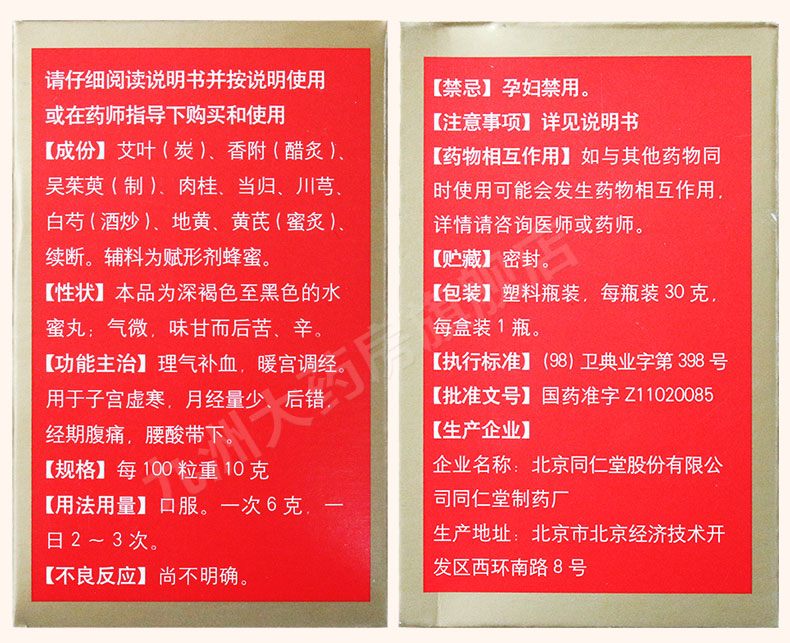 请仔细阅读说明书并按说明使用
或在药师指导下购买和使用
【成份】艾叶(炭)、香附(醋炙)、
吴茱萸(制)、肉桂、当归、川芎、
白芍(酒炒)、地黄、黄芪(蜜炙)、
续断。辅料为赋形剂蜂蜜。
【性状】本品为深褐色至黑色的水
蜜丸;气微,味甘而后苦、辛。
【功能主治】理气补血,暖宫调经。
用于子宫虚寒,月经量少、后错,
经期腹痛,腰酸带下。
【规格】每100粒重10克
【用法用量】口服。一次6克,一
日2～3次。
【不良反应】尚不明确。
【禁忌】孕妇禁用。
【注意事项】详见说明书
【药物相互作用】如与其他药物同
时使用可能会发生药物相互作用,
详情请咨询医师或药师。
【贮藏】密封。
【包装】塑料瓶装,每瓶装30克,
每盒装1瓶。
【执行标准】(98)卫典业字第398号
【批准文号】国药准字Z11020085
【生产企业】
企业名称:北京同仁堂股份有限公
司同仁堂制药厂
生产地址:北京市北京经济技术开
发区西环南路8号
九洲大药房旗舰店